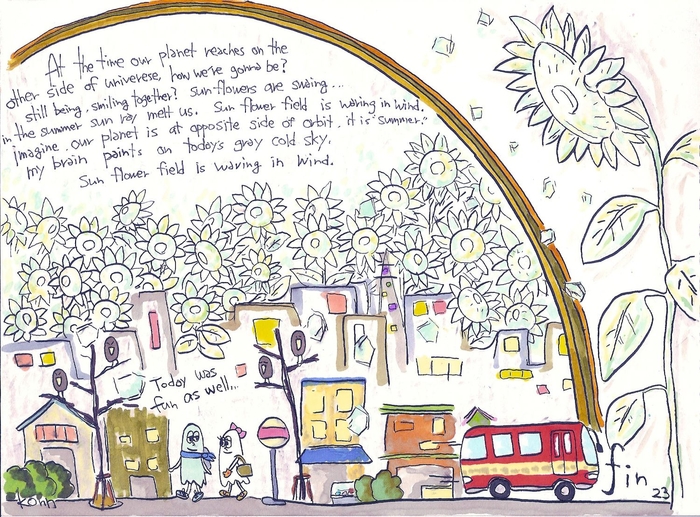 At the time our planet reaches on the
other side of univerese, how we're gonna be?
still being, smiling together? Sunflowers are swing...
in the summer sun ray melt us. Sun flower field is waving in wind.
Imagine, our planet is at opposite side of orbit, it is "summer."
my brain paints on today's gray cold sky.
Sun flower field is waving in wind.
Today was
fun as well...
fin
23